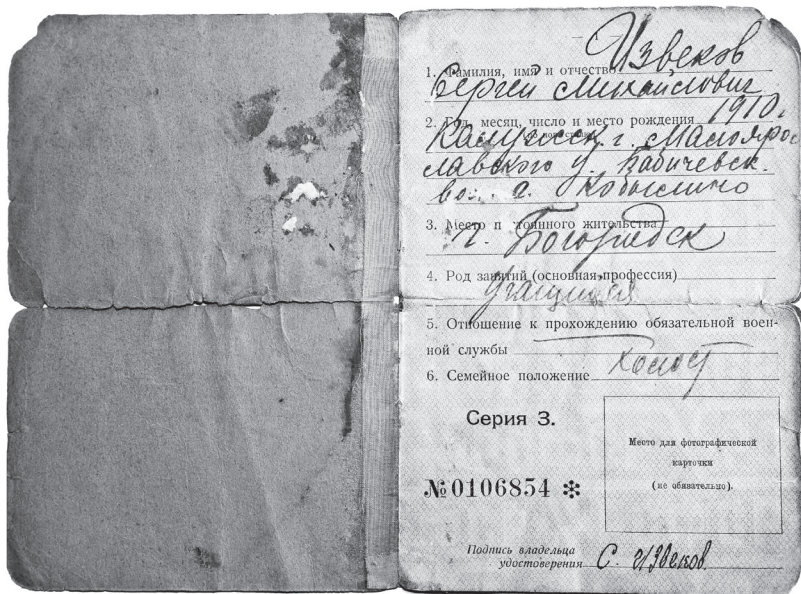 Извеков
1. Фамилия, имя и отчество
Сергей Михайлович
2. Год, месяц, число и место рождения 1910 г
Калужск. г. Малояро
славского у. Бабичевск.
вол. д. Кобылино
3. Место п тоянного жительства
г. Богородск
4. Род занятий (основная профессия)
Учащийся
5. Отношение к прохождению обязательной воен-
ной службы
6. Семейное положение холост
Серия З.
Место для фотографической
карточки
(не обязательно).
№ 0106854 ✻
Подпись владельца
удостоверения С. Извеков.